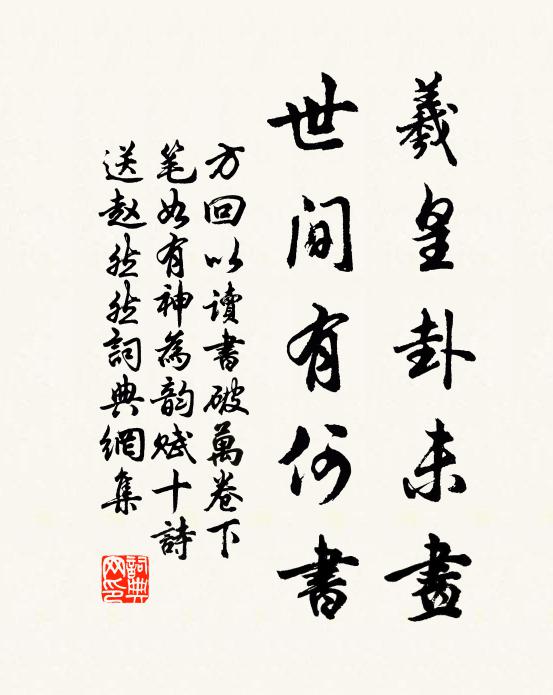 羲皇卦未畫
世間有何書
方回以讀書破萬卷下
笔如有神為韵赋十詩
送赵然然詞典網集
詞典
网印